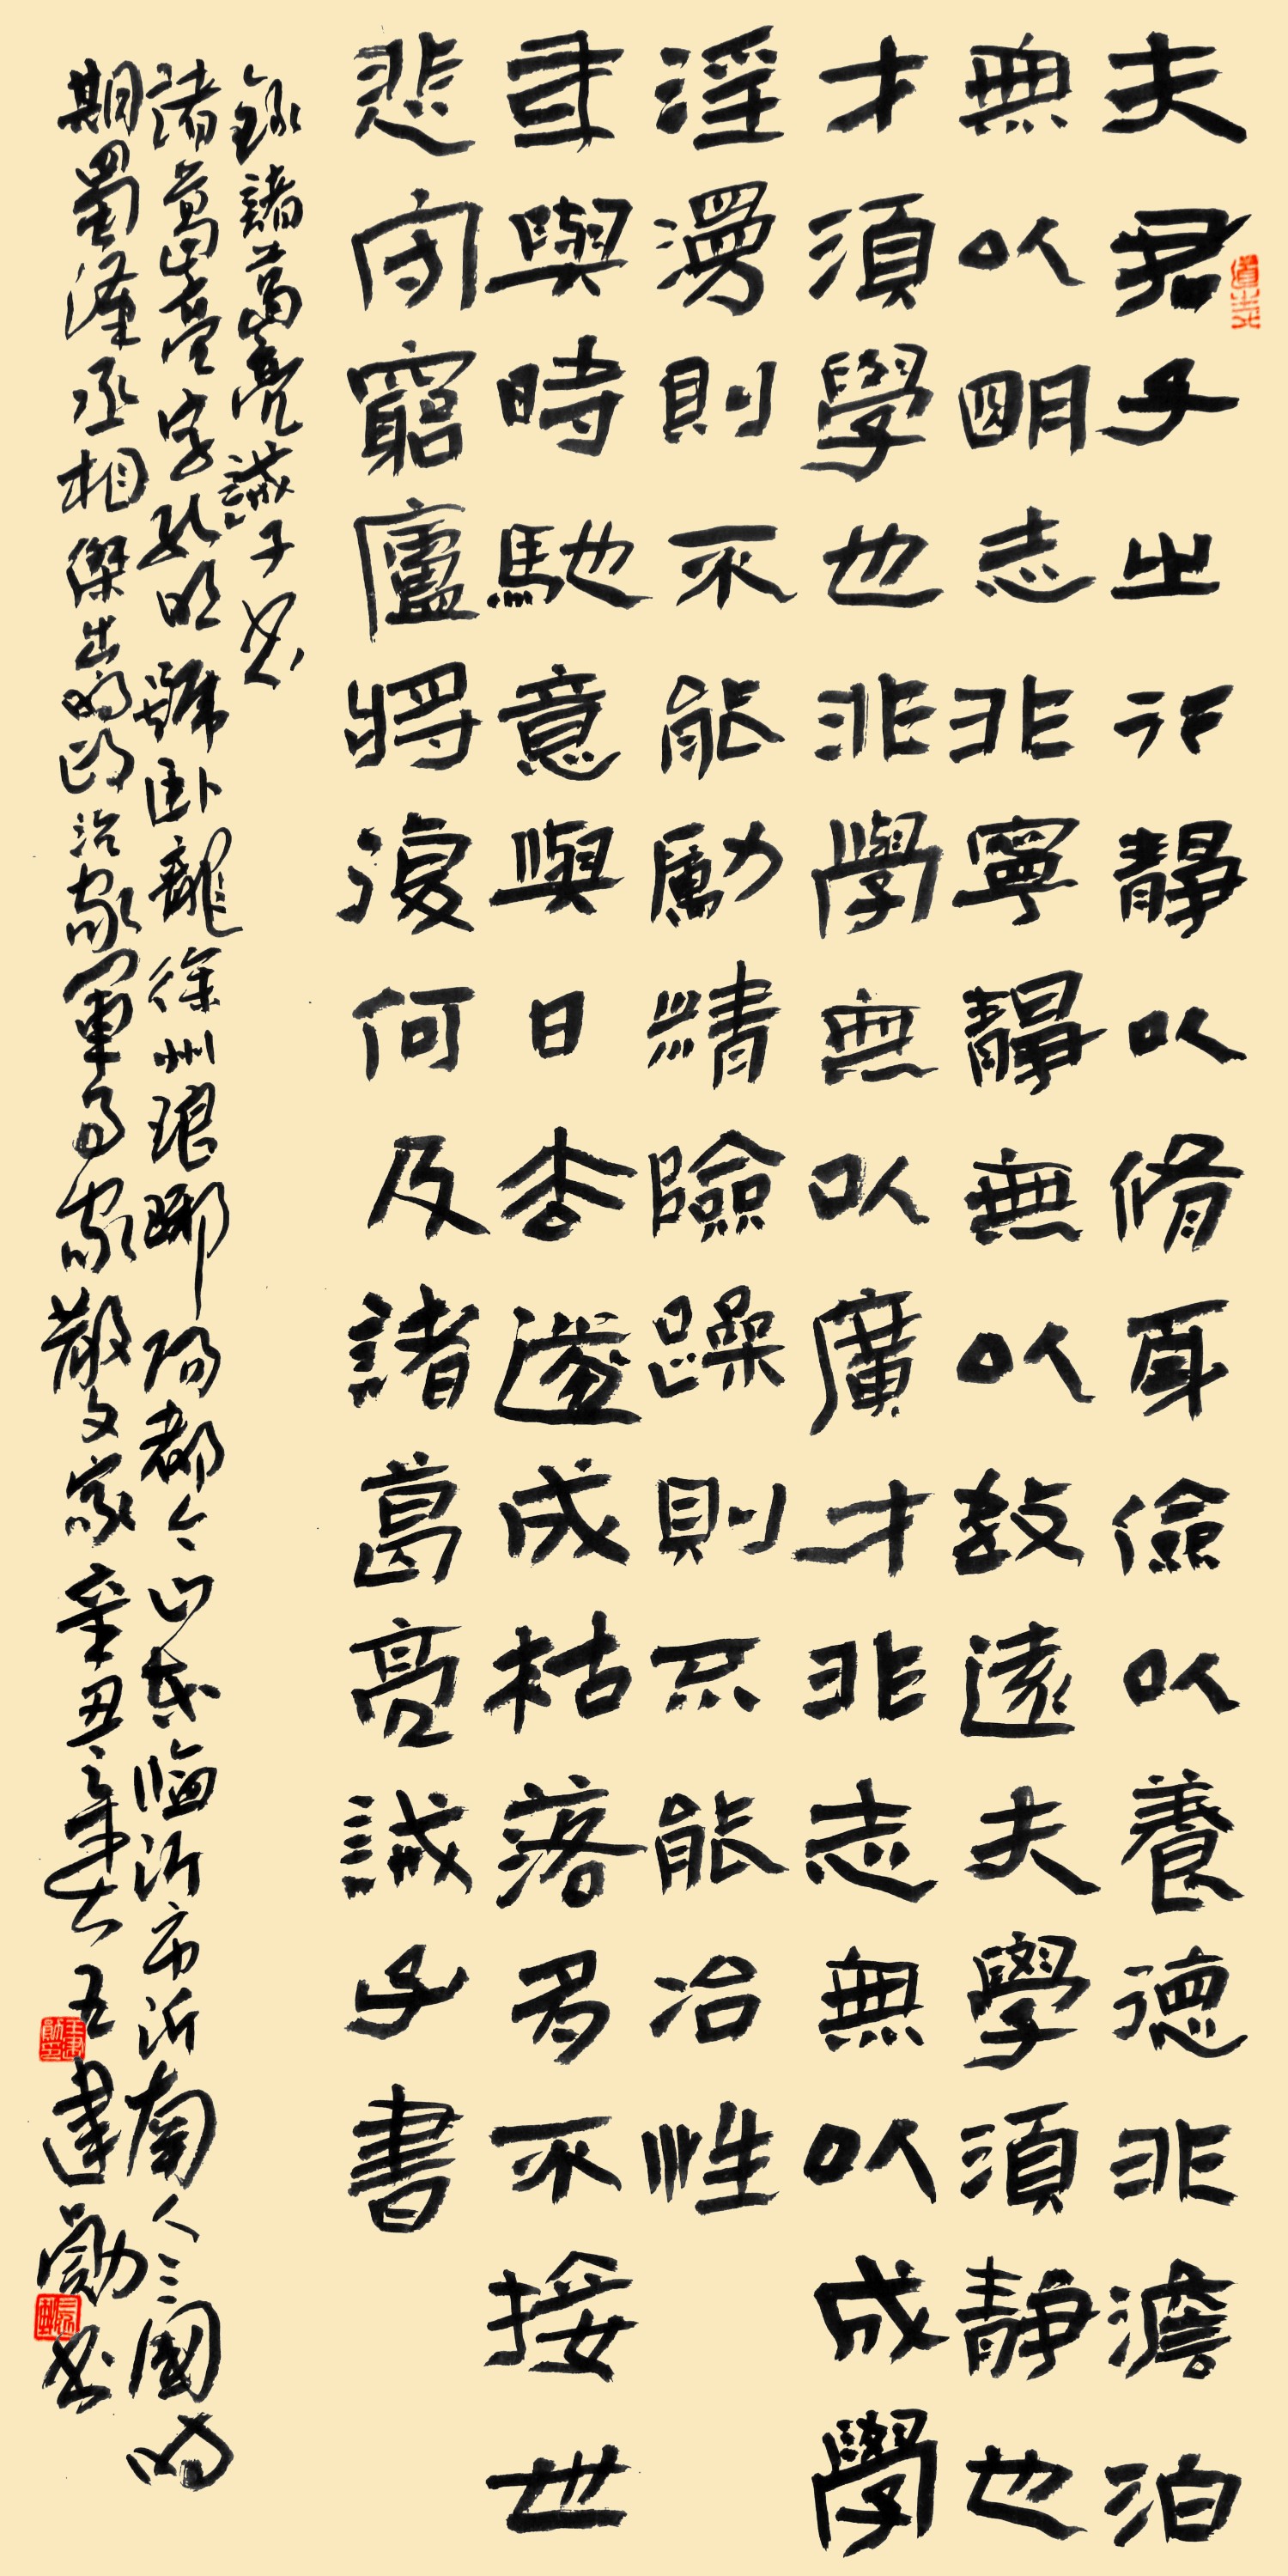 夫君子之行靜以脩身儉以養德非澹泊
無以明志非寧靜無以致遠夫學須靜也
才須學也非學無以廣才非志無以成學
淫漫則不能勵精險躁則不能冶性
年與時馳意與日去遂成枯落多不接世
悲守窮廬將復何及諸葛亮誡子書
錄諸葛亮誡子書
諸葛亮字孔明號卧龍徐州琅琊陽都今山東臨沂市沂南人三國時
期蜀漢丞相傑出的政治家軍事家散文家辛丑之年王建勛書